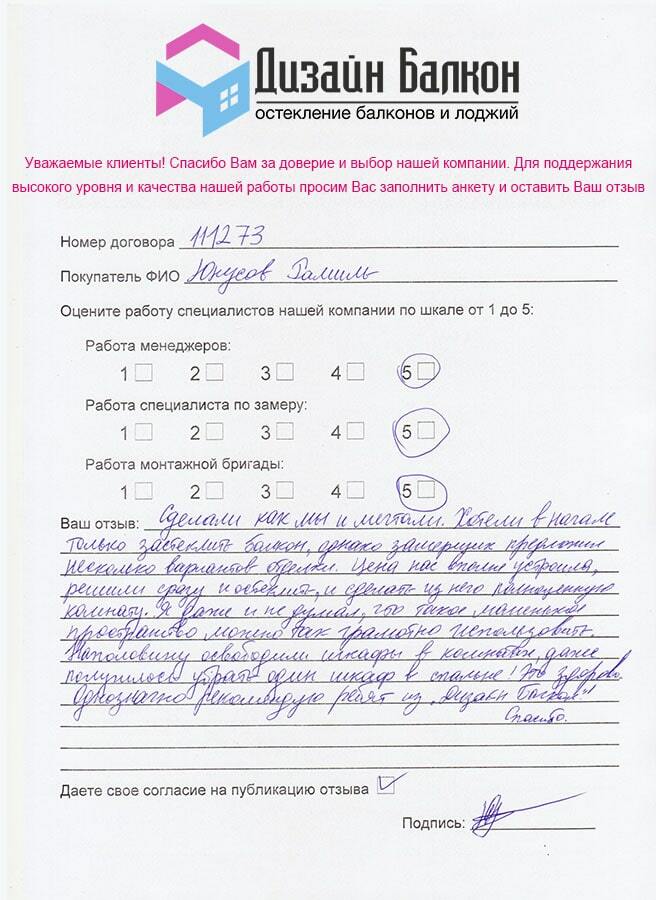 Дизайн Балкон
остекление балконов и лоджий
Уважаемые клиенты! Спасибо Вам за доверие и выбор нашей компании. Для поддержания
высокого уровня и качества нашей работы просим Вас заполнить анкету и оставить Ваш отзыв
Номер договора 111273
Покупатель ФИО Юнусов Рамиль
Оцените работу специалистов нашей компании по шкале от 1 до 5:
Работа менеджеров:
1 2 3 4 5
Работа специалиста по замеру:
1 2 3 4 5
Работа монтажной бригады:
1 2 3 4 5
Ваш отзыв: Сделали как мы и мечтали. Хотели в начале
только застеклить балкон, однако замерщик предложил
несколько вариантов отделки. Цена нас вполне устроила,
решили сразу и остеклить, и сделать из него полноценную
комнату. Я даже и не думал, что такое маленькое
пространство можно так грамотно использовать.
Наполовину освободили шкафы в комнатах, даже
получилось убрать один шкаф в спальне! Это здорово.
Однозначно рекомендую ребят из "Дизайн Балкон"!
Спасибо.
Даете свое согласие на публикацию отзыва
Подпись: